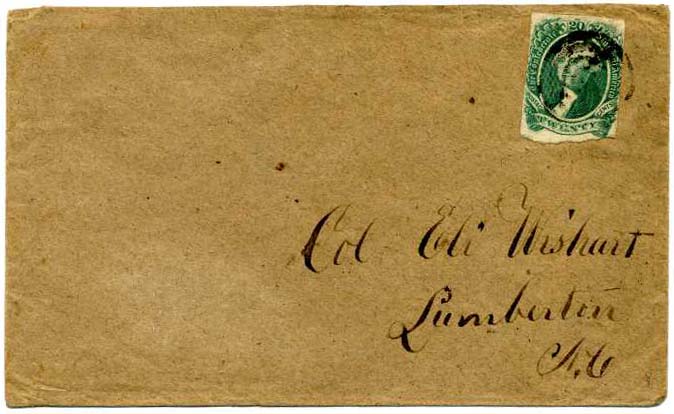 20
TWENTY
Col Eli Wishart
Lumberton
N.C